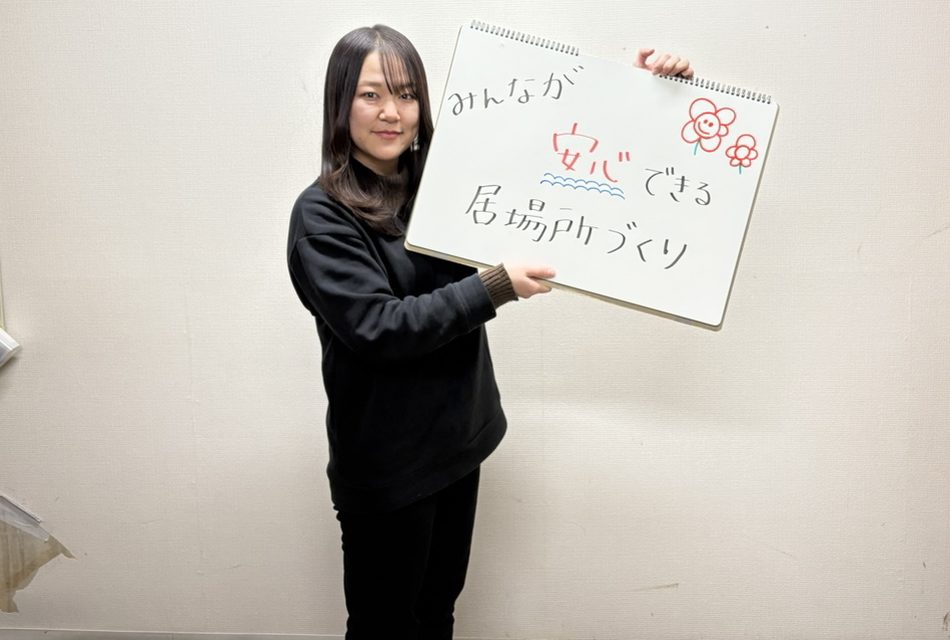 みんなが
安心できる
居場所づくり